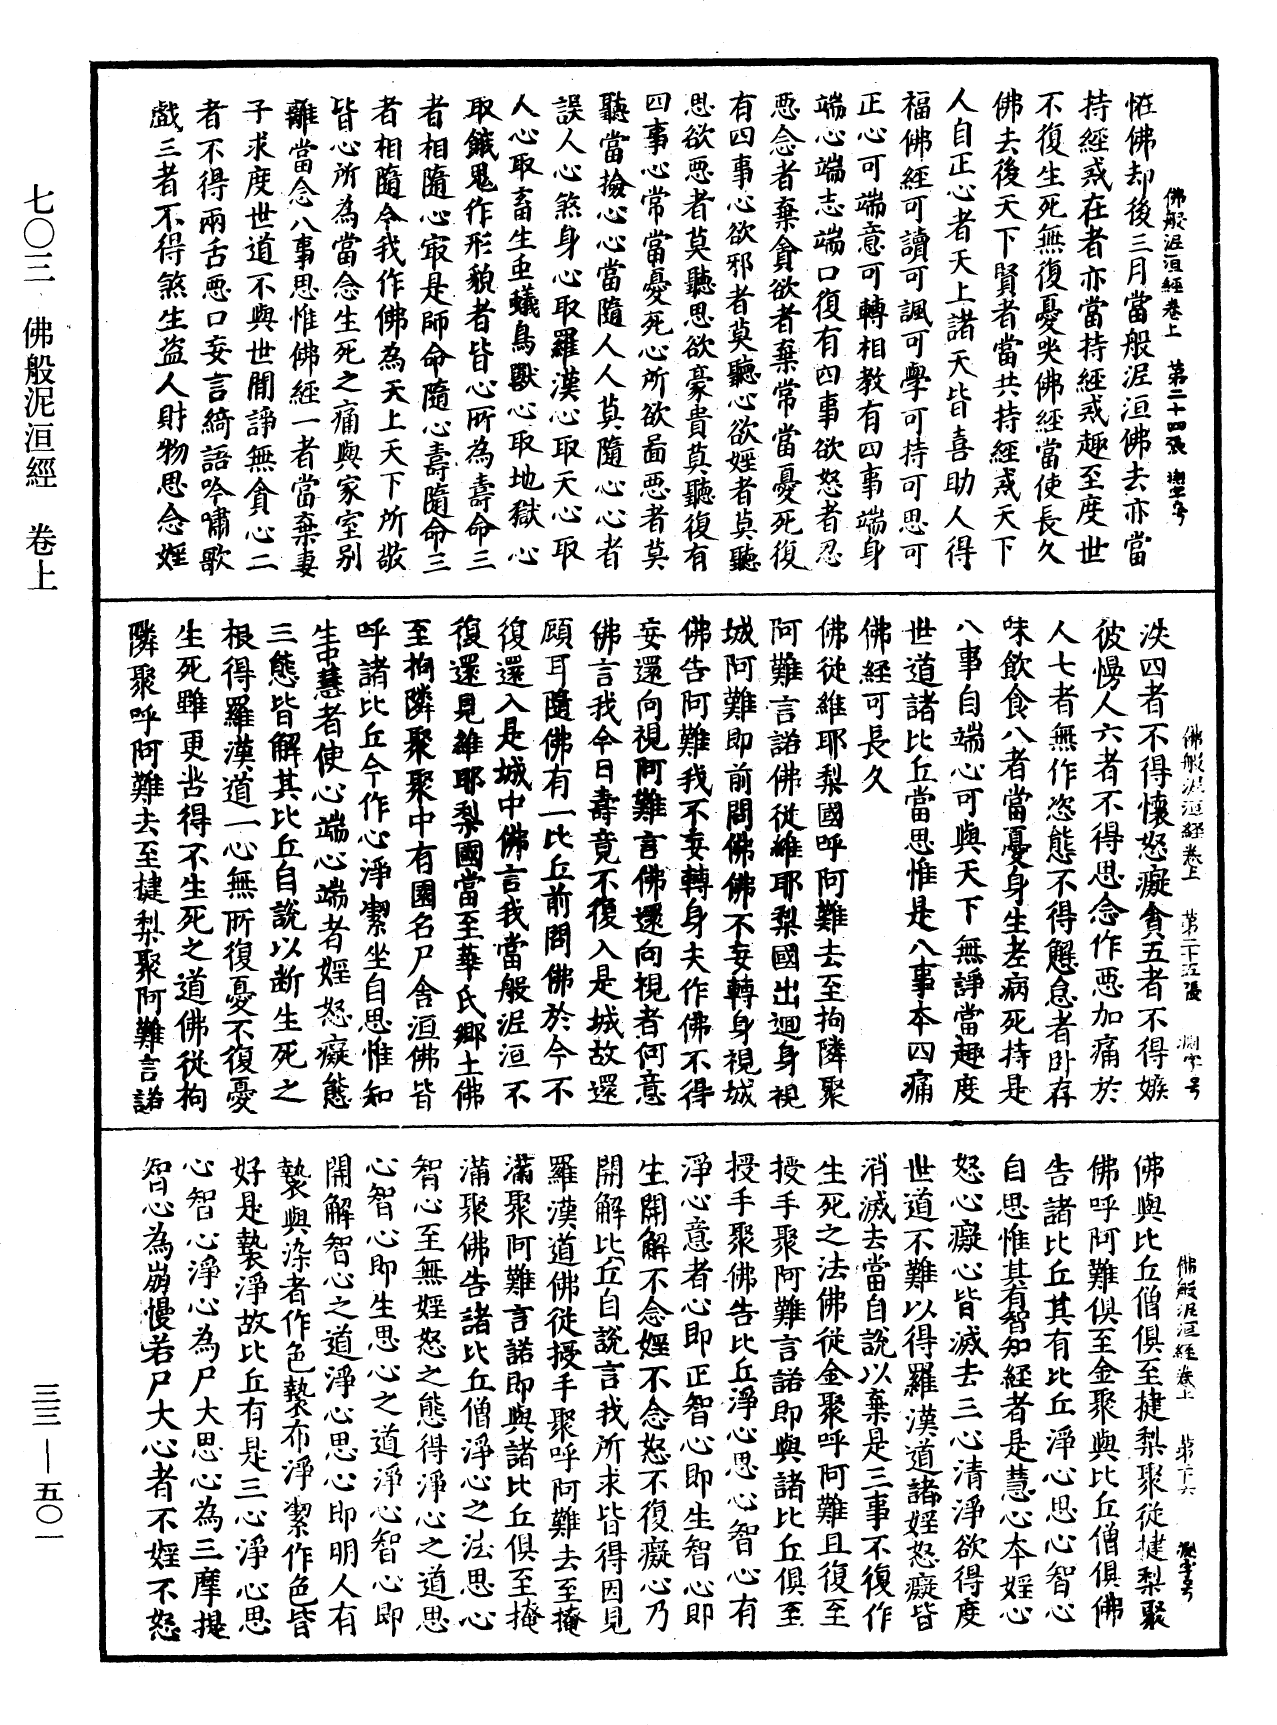 七〇三 佛般泥洹經 卷上
三三—五〇一
佛般泥洹經卷上 第二十四張
恠佛却後三月當般泥洹佛去亦當
持經戒在者亦當持經戒趣至度世
不復生死無復憂哭佛經當使長久
佛去後天下賢者當共持經戒天下
人自正心者天上諸天皆喜助人得
福佛經可讀可諷可學可持可思可
正心可端意可轉相教有四事端身
端心端志端口復有四事欲怒者忍
惡念者棄貪欲者棄常當憂死復
有四事心欲邪者莫聽心欲婬者莫聽
思欲惡者莫聽思欲豪貴莫聽復有
四事心常當憂死心所欲啚惡者莫
聽當撿心心當隨人人莫隨心心者
誤人心煞身心取羅漢心取天心取
人心取畜生䖝蟻鳥獸心取地獄心
取餓鬼作形貌者皆心所為壽命三
者相隨心㝡是師命隨心壽隨命三
者相隨今我作佛為天上天下所敬
皆心所為當念生死之痛與家室别
離當念八事思惟佛經一者當棄妻
子求度世道不與世閒諍無貪心二
者不得兩舌惡口妄言綺語吟嘯歌
戲三者不得煞生盗人財物思念婬
佛般泥洹經卷上 第二十五張
泆四者不得懷怒癡貪五者不得嫉
彼愓人六者不得思念作惡加痛於
人七者無作恣態不得懈怠者卧存
味飲食八者當憂身生老病死持是
八事自端心可與天下無諍當趣度
世道諸比丘當思惟是八事本四痛
佛經可長久
佛從維耶梨國呼阿難去至拘隣聚
阿難言諾佛從維耶梨國出迴身視
城阿難即前問佛佛不妄轉身視城
佛告阿難我不妄轉身夫作佛不得
妄還向視阿難言佛還向視者何意
佛言我今日壽竟不復入是城故還
顧耳隨佛有一比丘前問佛於今不
復還入是城中佛言我當般泥洹不
復還見維耶梨國當至華氏鄉土佛
至拘隣聚聚中有園名尸舍洹佛皆
呼諸比丘今作心淨潔坐自思惟知
生中慧者使心端心端者婬怒癡態
三態皆解其比丘自說以断生死之
根得羅漢道一心無所復憂不復憂
生死雖更苦得不生死之道佛從拘
隣聚呼阿難去至揵梨聚阿難言諾
佛般泥洹經卷上 第二十六
佛與比丘僧俱至揵梨聚從揵梨聚
佛呼阿難俱至金聚與比丘僧俱佛
告諸比丘其有比丘淨心思心智心
自思惟其有智知經者是慧心本婬心
怒心癡心皆滅去三心清淨欲得度
世道不難以得羅漢道諸婬怒癡皆
消滅去當自說以棄是三事不復作
生死之法佛從金聚呼阿難且復至
授手聚阿難言諾即與諸比丘俱至
授手聚佛告比丘淨心思心智心有
淨心意者心即正智心即生智心即
生開解不念婬不念怒不復癡心乃
開解比丘自說言我所求皆得因見
羅漢道佛從授手聚呼阿難去至掩
滿聚阿難言諾即與諸比丘俱至掩
滿聚佛告諸比丘僧淨心之法思心
智心至無婬怒之態得淨心之道思
心智心即生思心之道淨心智心即
開解智心之道淨心思心即明人有
㲲與染者作色㲲布淨潔作色皆
好是㲲淨故比丘有是三心淨心思
心智心淨心為尸大思心為三摩提
智心為崩慢若尸大心者不婬不怒